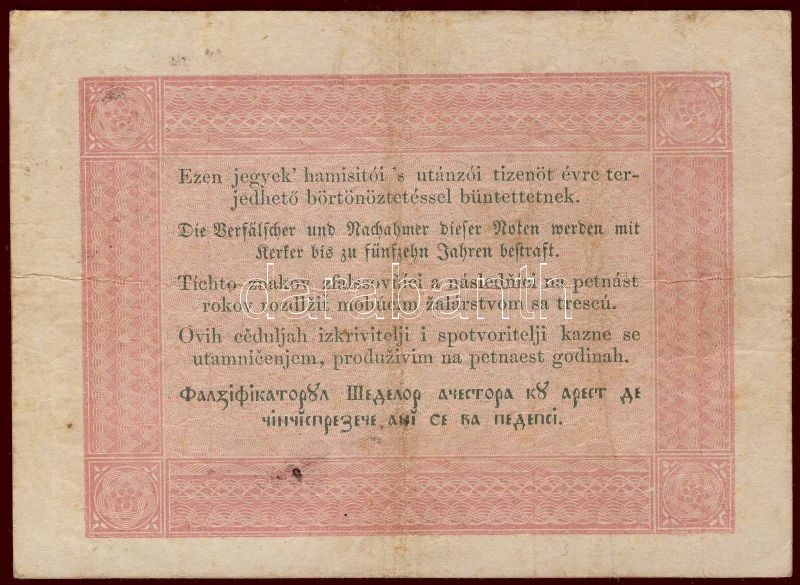 Ezen jegyek' hamisitói 's utánzói tizenöt évre ter-
jedhető börtönöztetéssel büntettetnek.
Die Verfälscher und Nachahmer dieser Noten werden mit
Kerker bis zu fünfzehn Jahren bestraft.
Tíchto znakov zfalssovňíci a násleďňíci na petnást
rokov rozdĺžiť mobúcim žalárstvom sa trescú.
darabanth
Ovih cĕduljah izkrivitelji i spotvoritelji kazne se
utamničenjem, produživim na petnaest godinah.
Фалзіфікаторꙋл Шеделор ачестора кꙋ арест де
чінчіспрезече ані се ва педепсі.